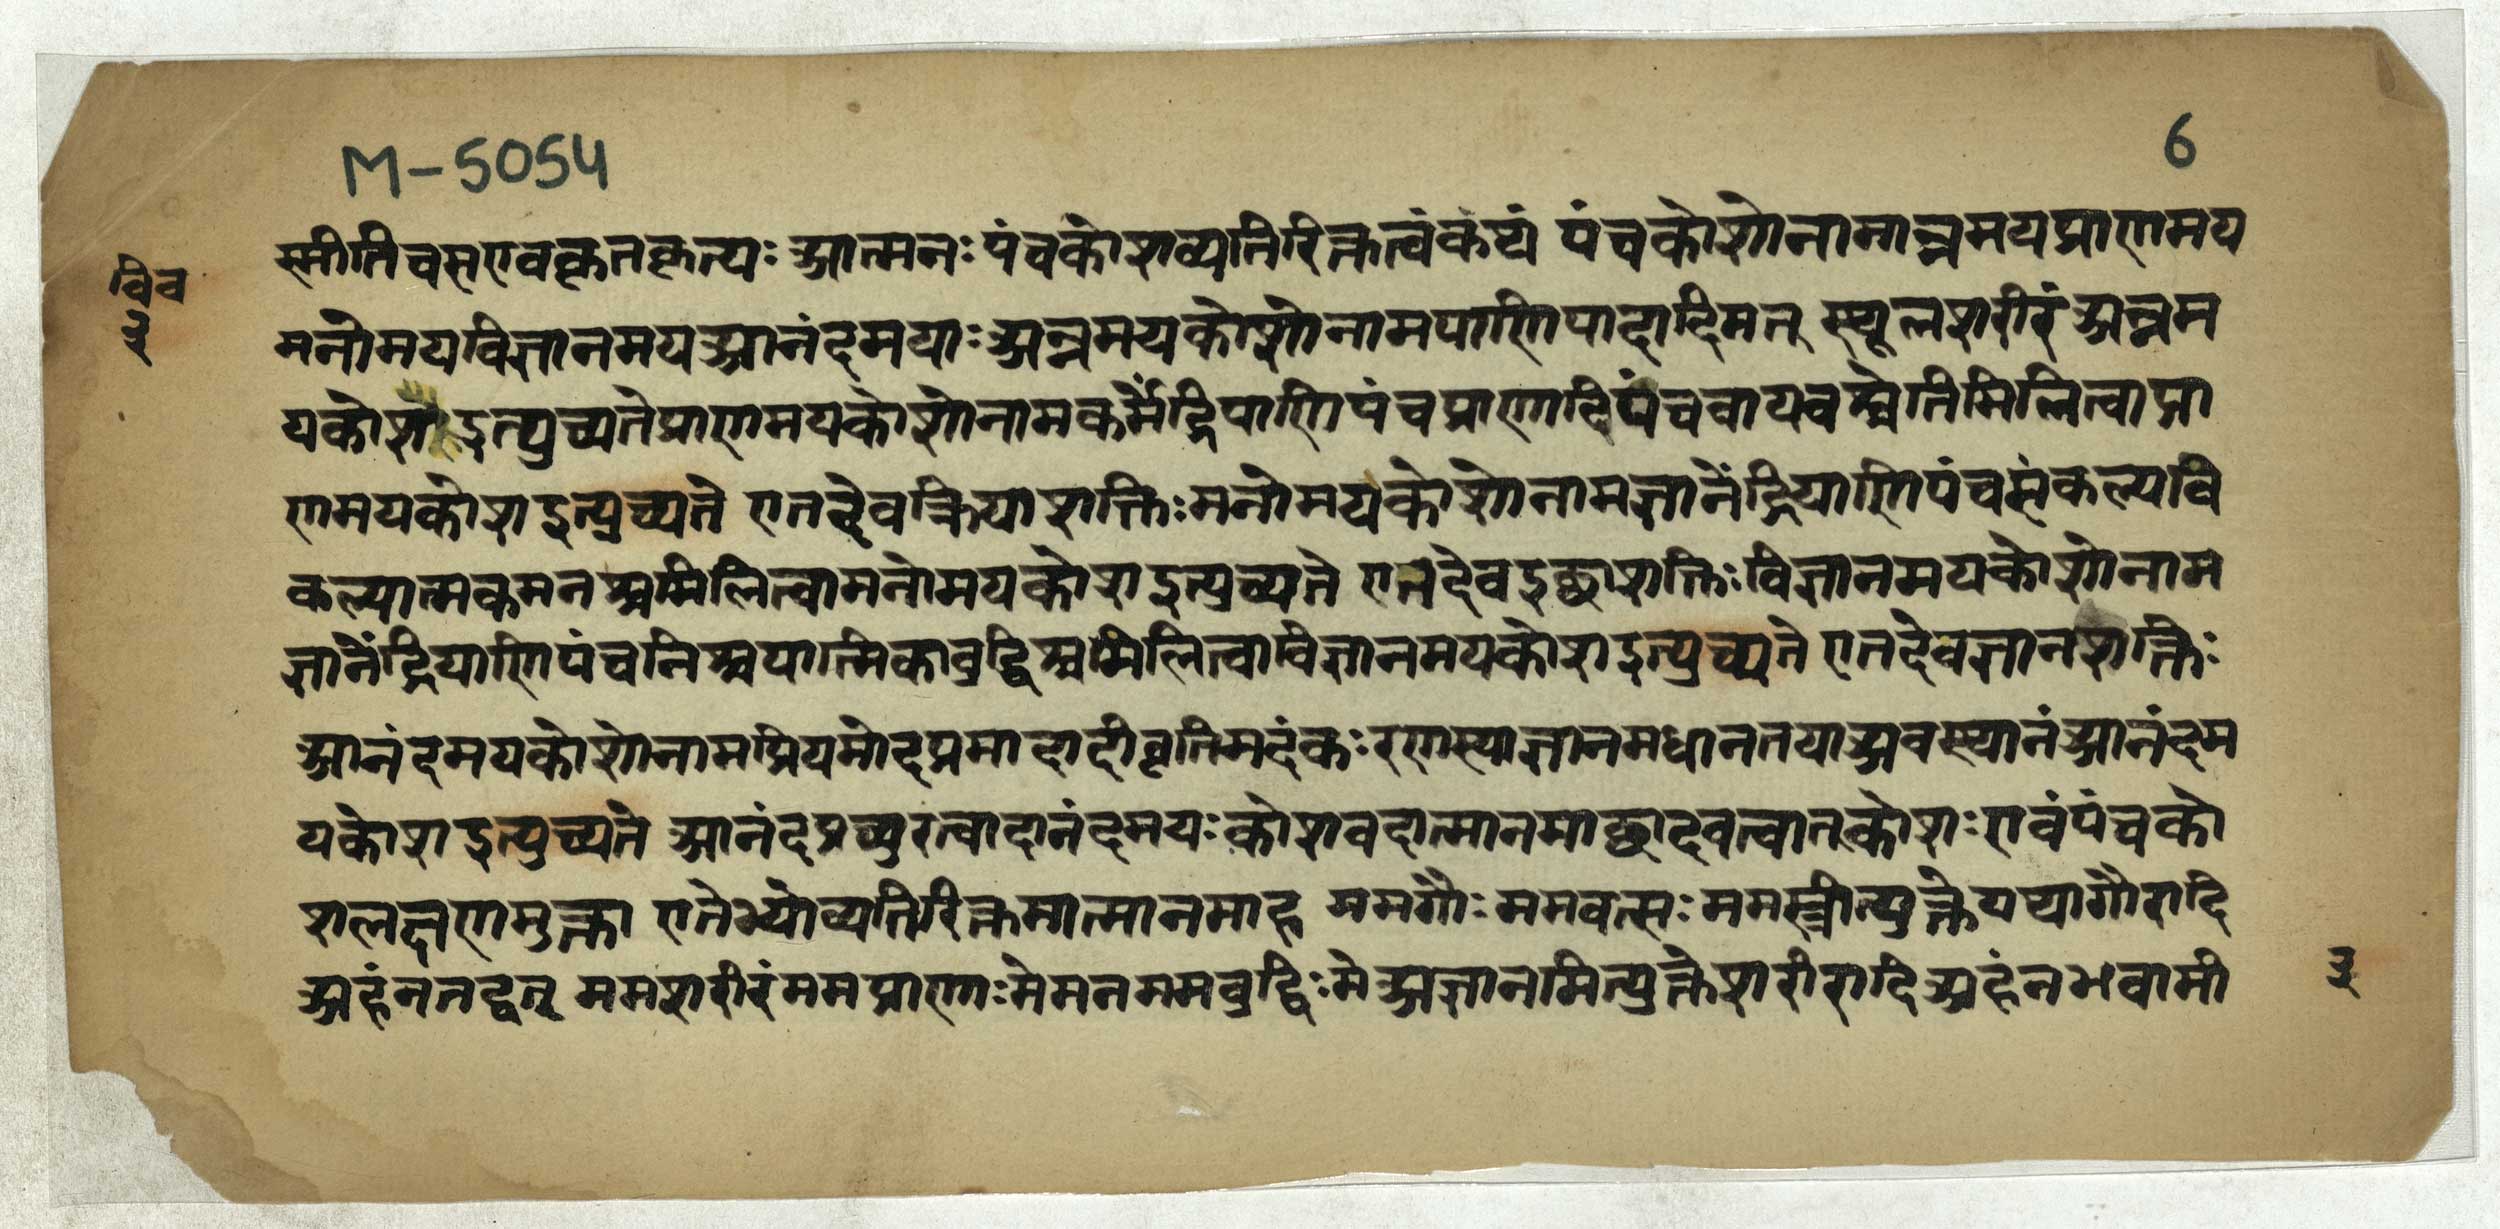 M-5054
6
विव
३
स्मीतिचसएवकृतकृत्यः आत्मनः पंचकोशव्यतिरिक्तत्वंकंष्टां पंचकोशोनामान्नमयप्राणमय
मनोमयविज्ञानमयआनंदमयाः अन्नमयकोशोनामपाणिपादादिमत् स्थूलशरीरं अन्नम
यकोशइत्युच्यतेप्राणमयकोशोनामकर्मेंद्रियाणिपंचप्राणादिपंचवायवश्चेतिमिलित्वाप्रा
णमयकोशइत्युच्यते एतदेवक्रियाशक्तिः मनोमयकोशोनामज्ञानेंद्रियाणिपंचसंकल्पवि
कल्पात्मकमनश्चमिलित्वामनोमयकोशइत्युच्यते एतदेवइच्छाशक्तिः विज्ञानमयकोशोनाम
ज्ञानेंद्रियाणिपंचनिश्चयात्मिकाबुद्धिश्चमिलित्वाविज्ञानमयकोशइत्युच्यते एतदेवज्ञानशक्तिः
आनंदमयकोशोनामप्रियमोदप्रमोदादीवृतिमदंकःरणस्याज्ञानमधानतयाअवस्थानंआनंदम
यकोशइत्युच्यते आनंदप्रच्युरत्वादानंदमयः कोशवदात्मानमाच्छादवत्वात्कोशः एवंपंचको
शलक्षणमुक्ता एतेभ्योव्यतिरिक्तमात्मानमाह ममगौः ममवत्सः ममस्त्रीत्युक्तेयथागौरादि
अहंनतद्वत् ममशरीरंममप्राणाः मेमनममबुद्धिः मेअज्ञानमित्युक्तेशरीरादिअहंनभवामी
३